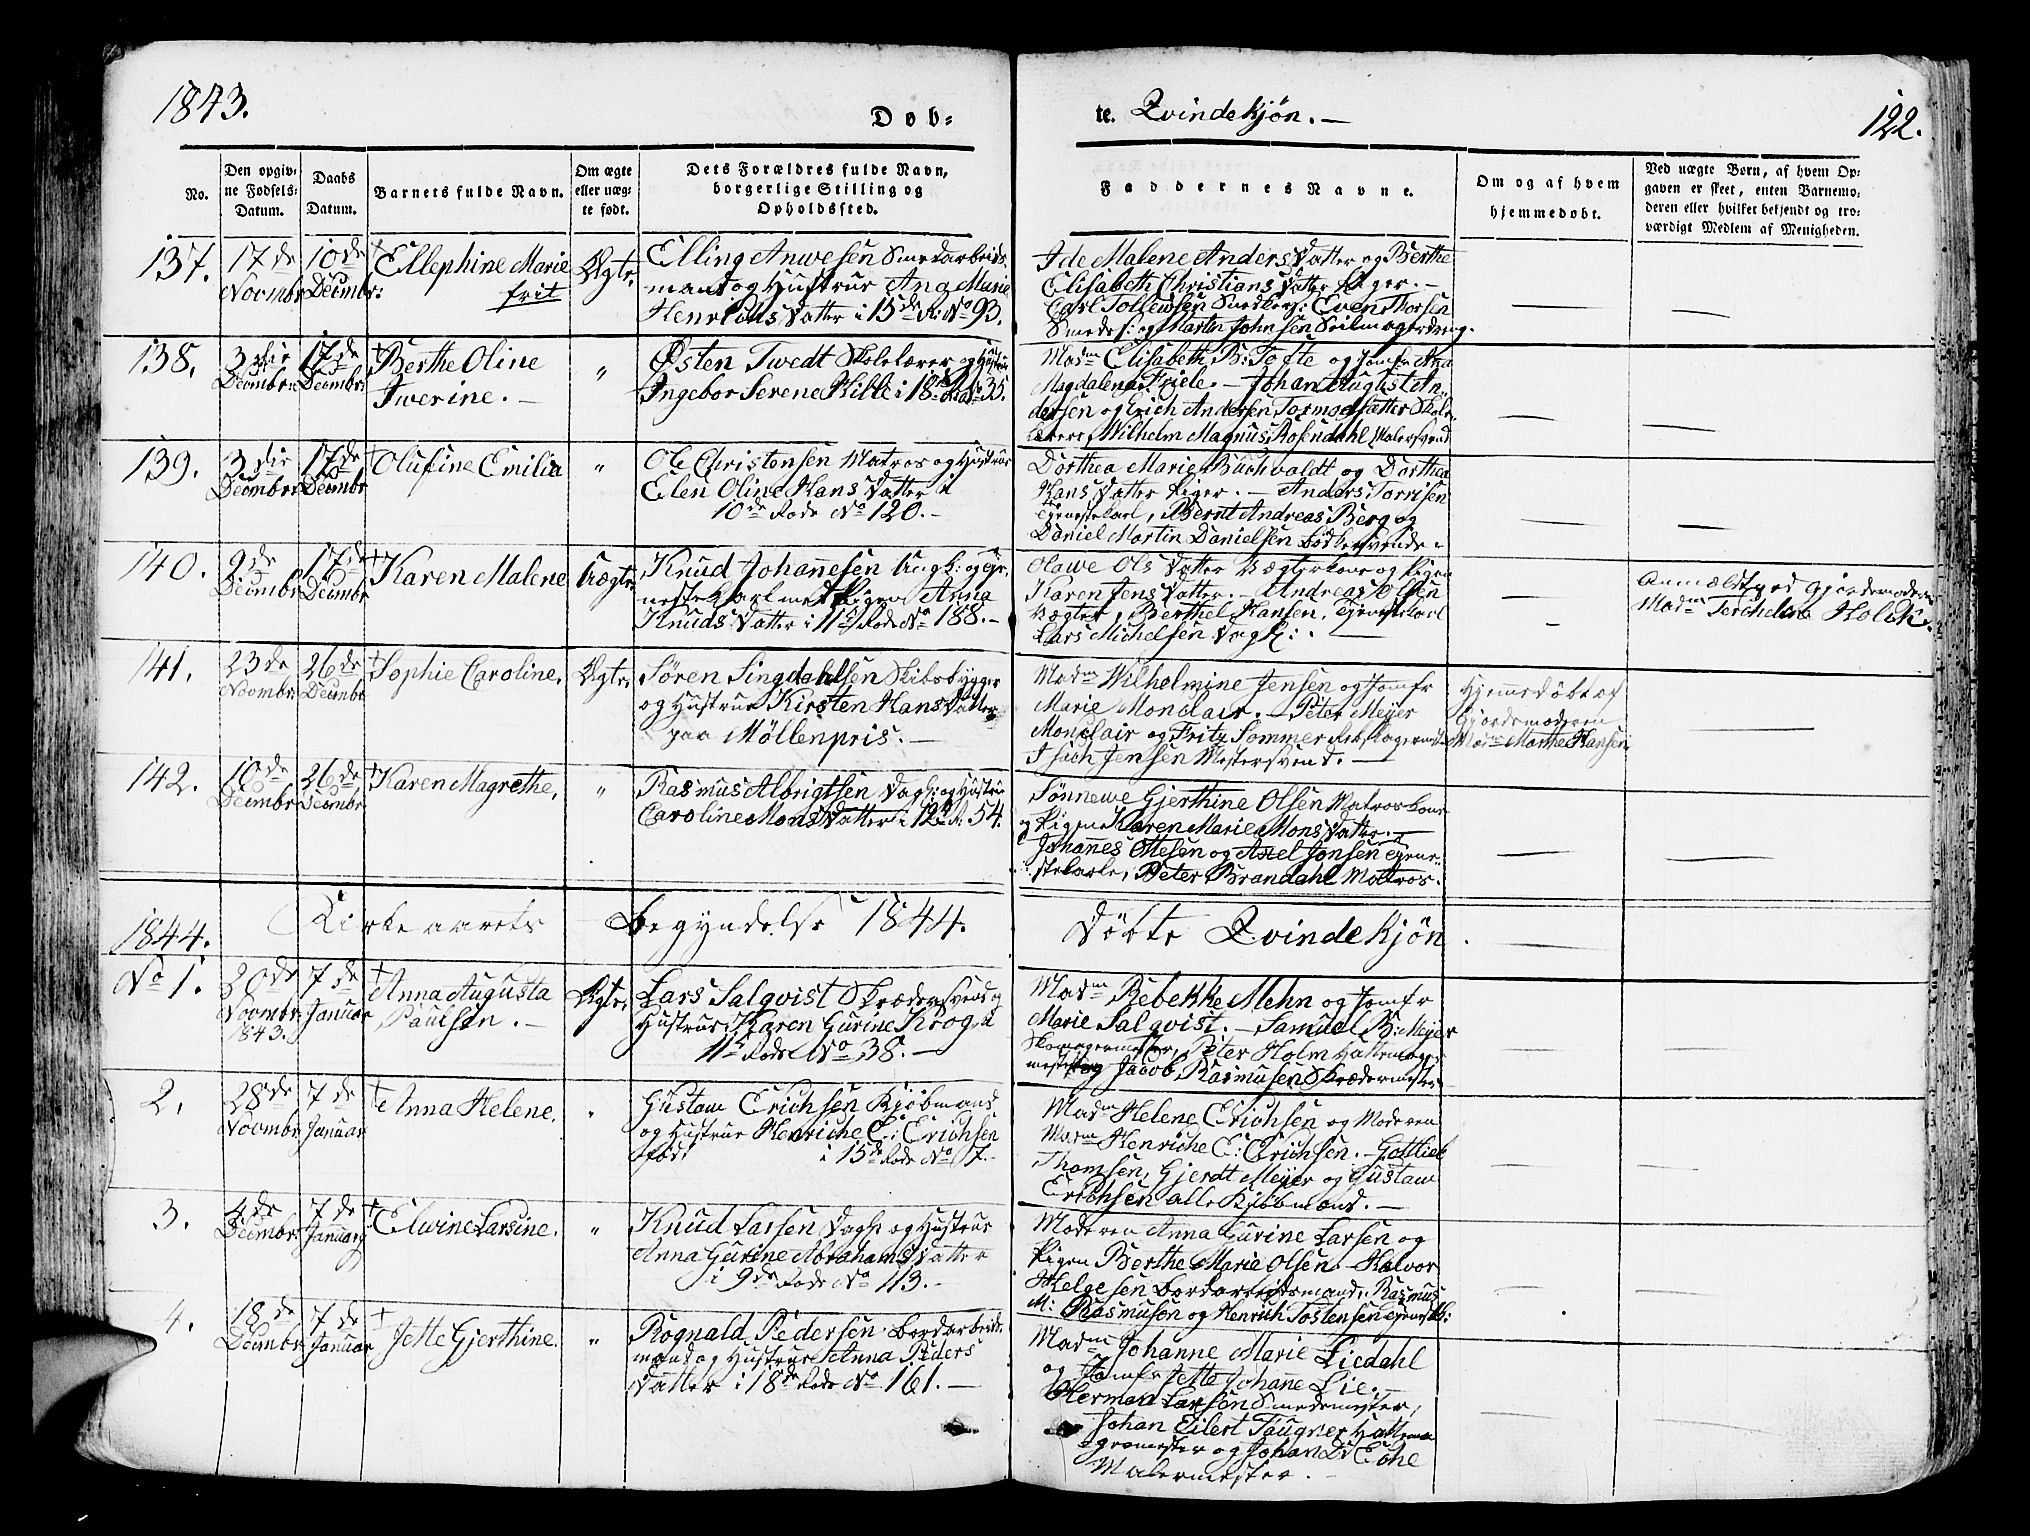 1843.
Døb-
te. Qvindekjøn. —
122.
No.
Den opgiv-
ne Fødsels-
Datum.
Daabs
Datum.
Barnets fulde Navn.
Om ægte
eller uæg-
te født.
Dets Forældres fulde Navn,
borgerlige Stilling og
Opholdssted.
Faddernes Navne.
Om og af hvem
hjemmedøbt.
Ved uægte Børn, af hvem Op-
gaven er skeet, enten Barnemo-
deren eller hvilket bekjendt og tro-
værdigt Medlem af Menigheden.
137.
17de
Novembr
10de
Decmbr:
Ellephine Marie
frit
Ægte.
Elling Anwesen Smedarbeids-
mand og Hustrue Ana Marie
Henrichs Datter i 15de R: No 93.
Ide Malene Anders Datter og Berthe
Elisabeth Christians Datter Piger. —
Carl Tollewsen Smedsv: Even Thorsen
Smeds: og Martin Johnsen Seilmagerdreng.
138.
3die
Decmbr:
17de
Decmbr:
Berthe Oline
Iwerine. —
"
Østen Twedt Skolelærer og Hustrue
Ingebor Serene Hille i 18de R: No 35.
Madm Elisabeth B: Tofte og Jomfr Ana
Magdalena Friele. — Johan August An-
dersen og Erich Andersen Tormodsætter Skole-
lærere, Wilhelm Magnus Rosendahl Malersvend
139.
3die
Decmbr:
17de
Decmbr
Olufine Emilia
"
Ole Christensen Matros og Hustrue
Elen Oline Hans Datter i
10de Rode No 120. —
Dorthea Marie Buchvaldt og Dorthea
Hans Datter Piger. — Anders Torrisen
Tjenestekarl, Bernt Andreas Berg og
Daniel Martin Danielsen Bødkersvende.
140.
9de
Decmbr
17de
Decmbr
Karen Malene
Uægte.
Knud Johannesen Ungk: og Tje-
nestekarl med Pigen Anna
Knuds Datter i 11te Rode No 188. —
Olawe Ols Datter Vægterkone og Pigen
Karen Jens Datter. — Andreas Olsen
Vægter, Berthel Hansen, Tjenestekarl
Lars Michelsen Dagk:. —
Anmeldt ved Gjordemoderen
Madm Holck.
141.
23de
Novmbr:
26de
Decmbr
Sophie Caroline.
Ægte.
Søren Singdahlsen Skibsbygger
og Hustrue Kirsten Hans Datter
paa Möllenpris. —
Madm Wilhelmine Jensen og Jomfr
Marie Monclair. — Peter Meyer
Monclair og Fritz Sommer
Isach Jensen Mestersvend. —
Hjemedøbt af
Gjordemoderen
Madm Marthe Hansen
142.
10de
Decmbr
26de
Decmbr
Karen Magrethe.
"
Rasmus Albrigtsen Dagk: og Hustrue
Caroline Mons Datter i 12te R: 54.
Sønnewe Gjerthine Olsen Matroskone
og Pigen Karen Marie Mons Datter. —
Johannes Ottesen og Axel Jonsen Tjene-
stekarle, Peter Brandahl Matros.
1844.
Kirkeaarets Begyndelse 1844.
Døbte Qvindekjøn.
No 1.
20de
Novmbr
1843.
7de
Januar
Anna Augusta
Paulsen. —
Ægte.
Lars Salqvist Skrædersvend og
Hustrue Karen Gurine Krog i
11te Rode No 38. —
Madm Rebekke Mehn og Jomfr
Marie Salqvist. — Samuel B: Meyer
Skomagermester, Peter Holm Hattemager-
mester og Jacob Rasmusen Skrædermester
2.
28de
Novmbr
7de
Januar
Anna Helene.
"
Gustaw Erichsen Kjøbmand
og Hustrue Henriche E: Erichsen
født i 15de Rode No 17. —
Madm Helene Erichsen og Moderen
Madm Henriche E: Erichsen. — Gottlieb
Thomsen, Gjerdt Meyer og Gustaw
Erichsen alle Kjøbmænd. —
3.
4de
Decmbr
7de
Januar
Elwine Larsine.
"
Knud Larsen Dagk: og Hustrue
Anna Gurine Abrahams Datter
i 9de Rode No 113. —
Moderen Anna Gurine Larsen og
Pigen Berthe Marie Olsen. Halvor
Helgesen Bordarbeidsmand, Rasmus
M: Rasmusen og Henrich Tostensen Tjenestk:
4.
18de
Decmbr
7de
Januar
Jette Gjerthine.
"
Rognald Pedersen Bordarbeids-
mand og Hustrue Anna Peders
Datter i 18de Rode No 161. —
Madm Johanne Marie Liedahl
og Jomfr Jette Johanne Lie. —
Herman Larsen Smedemester,
Johan Eilert Taugner Hattema-
germester og Johan
Malermester. —